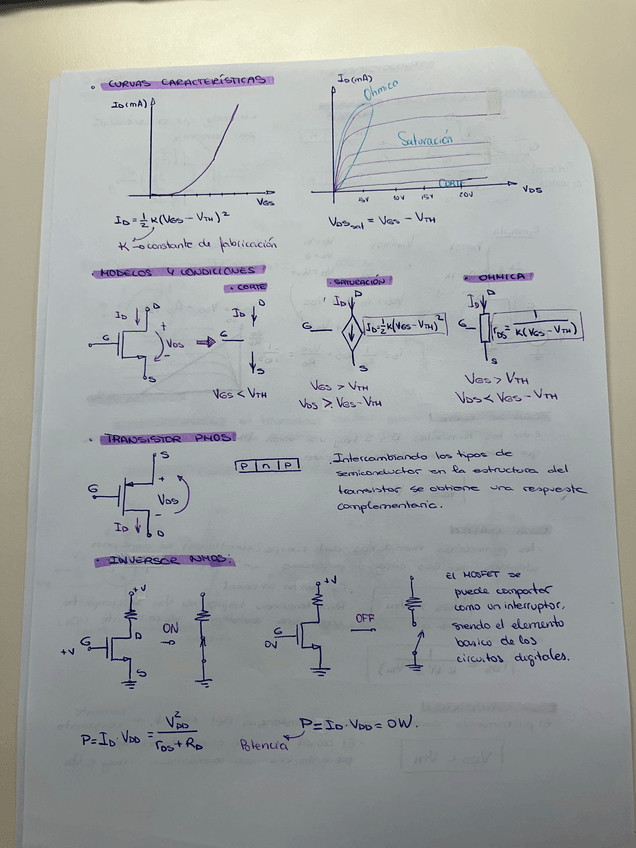 • CURVAS CARACTERÍSTICAS
ID(mA)
VGS
ID = 1/2 K(VGS - VTH)²
K → constante de fabricación
ID(mA)
Ohmica
Saturación
Corte
5V 10V 15V 20V
VDS
VDSsat = VGS - VTH
• MODELOS Y CONDICIONES
• CORTE
• SATURACIÓN
• OHMICA
ID D
G
+
VDS
-
S
⇒
ID D
G
S
VGS < VTH
ID D
G
ID=1/2 K(VGS-VTH)²
S
VGS > VTH
VDS ≥ VGS - VTH
ID D
G
rDS = 1/K(VGS - VTH)
S
VGS > VTH
VDS < VGS - VTH
• TRANSISTOR PMOS
S
G
+
VDS
-
ID D
P n P
. Intercambiando los tipos de
semiconductor en la estructura del
transistor se obtiene una respuesta
complementaria.
• INVERSOR NMOS:
+V
G
D
+V
S
ON
→
+V
G
0V
OFF
→
El MOSFET se
puede comportar
como un interruptor,
siendo el elemento
basico de los
circuitos digitales.
P = ID · VDD = V²DD / rDS + RD
P = ID · VDD = 0W.
Potencia